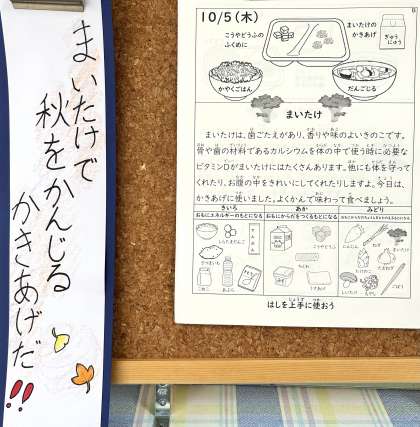 まいたけで
秋をかんじる
かきあげだ
!!
10/5(木)
こうやどうふの
ふくめに
まいたけの
かきあげ
ぎゅう
にゅう
かやくごはん
だんごじる
まいたけ
まいたけは、歯ごたえがあり、香りや味のよいきのこです。
骨や歯の材料であるカルシウムを体の中で使う時に必要な
ビタミンDがまいたけにはたくさんあります。他にも体を守って
くれたり、お腹の中をきれいにしてくれたりしますよ。今日は、
かきあげに使いました。よくかんで味わって食べましょう。
きいろ
あか
みどり
おもにエネルギーのもとになる
おもにからだをつくるもとになる
しらたまだんご
さつまいも
こめこ
あぶら
こうやどうふ
ちくわ
うすあげ
にんじん
ねぎ
まいたけ
たまねぎ
しいたけ
ごぼう
はしを上手に使おう